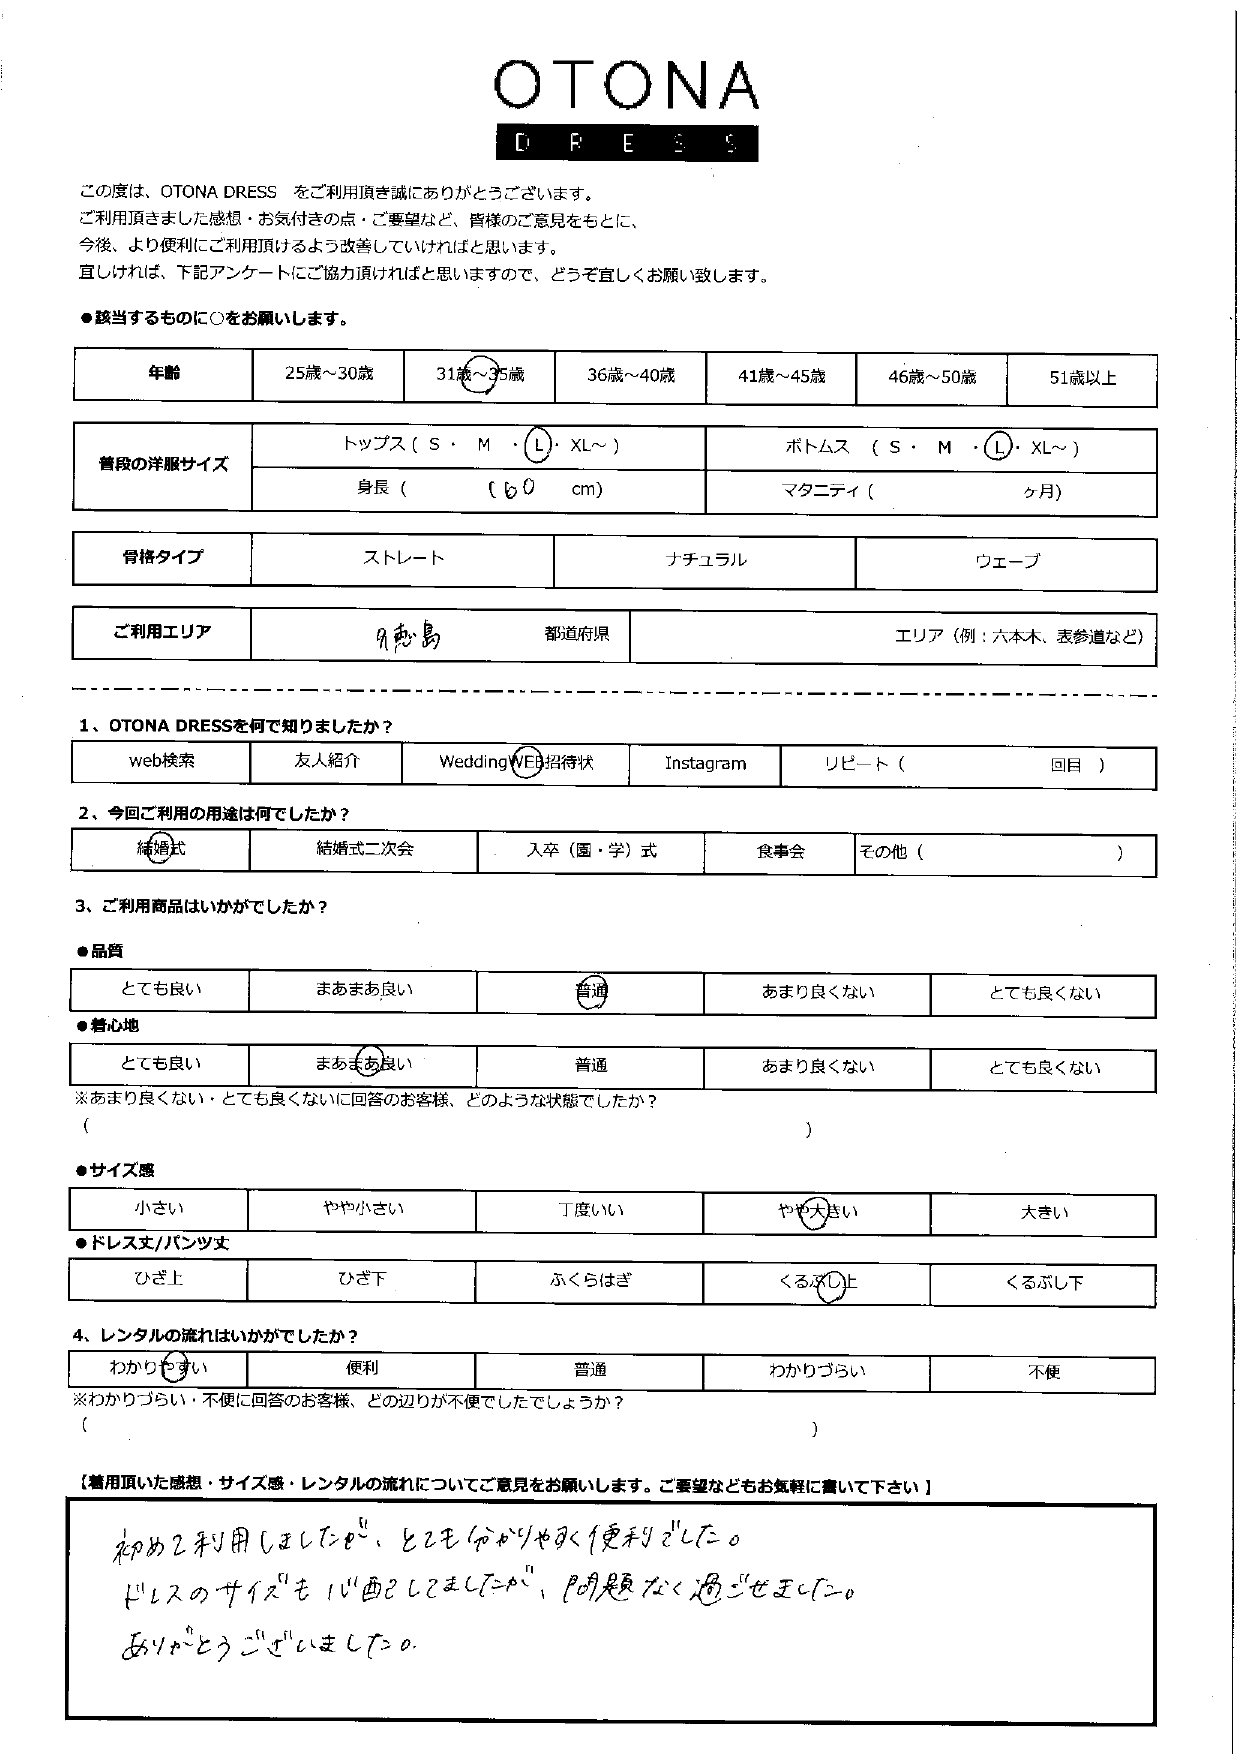 OTONA
DRESS
この度は、OTONA DRESS をご利用頂き誠にありがとうございます。
ご利用頂きました感想・お気付きの点・ご要望など、皆様のご意見をもとに、
今後、より便利にご利用頂けるよう改善していければと思います。
宜しければ、下記アンケートにご協力頂ければと思いますので、どうぞ宜しくお願い致します。
●該当するものに○をお願いします。
年齢 25歳～30歳 31歳～35歳 36歳～40歳 41歳～45歳 46歳～50歳 51歳以上
普段の洋服サイズ トップス ( S ・ M ・ L ・ XL～ ) ボトムス ( S ・ M ・ L ・ XL～ )
身長 ( 160 cm) マタニティ ( ヶ月)
骨格タイプ ストレート ナチュラル ウェーブ
ご利用エリア 徳島 都道府県 エリア（例：六本木、表参道など）
1、OTONA DRESSを何で知りましたか？
web検索 友人紹介 WeddingWEB招待状 Instagram リピート ( 回目 )
2、今回ご利用の用途は何でしたか？
結婚式 結婚式二次会 入卒（園・学）式 食事会 その他 ( )
3、ご利用商品はいかがでしたか？
●品質
とても良い まあまあ良い 普通 あまり良くない とても良くない
●着心地
とても良い まあまあ良い 普通 あまり良くない とても良くない
※あまり良くない・とても良くないに回答のお客様、どのような状態でしたか？
( )
●サイズ感
小さい やや小さい 丁度いい やや大きい 大きい
●ドレス丈/パンツ丈
ひざ上 ひざ下 ふくらはぎ くるぶし上 くるぶし下
4、レンタルの流れはいかがでしたか？
わかりやすい 便利 普通 わかりづらい 不便
※わかりづらい・不便に回答のお客様、どの辺りが不便でしたでしょうか？
( )
【着用頂いた感想・サイズ感・レンタルの流れについてご意見をお願いします。ご要望などもお気軽に書いて下さい 】
初めて利用しましたが、とても分かりやすく便利でした。
ドレスのサイズも心配してましたが、問題なく過ごせました。
ありがとうございました。